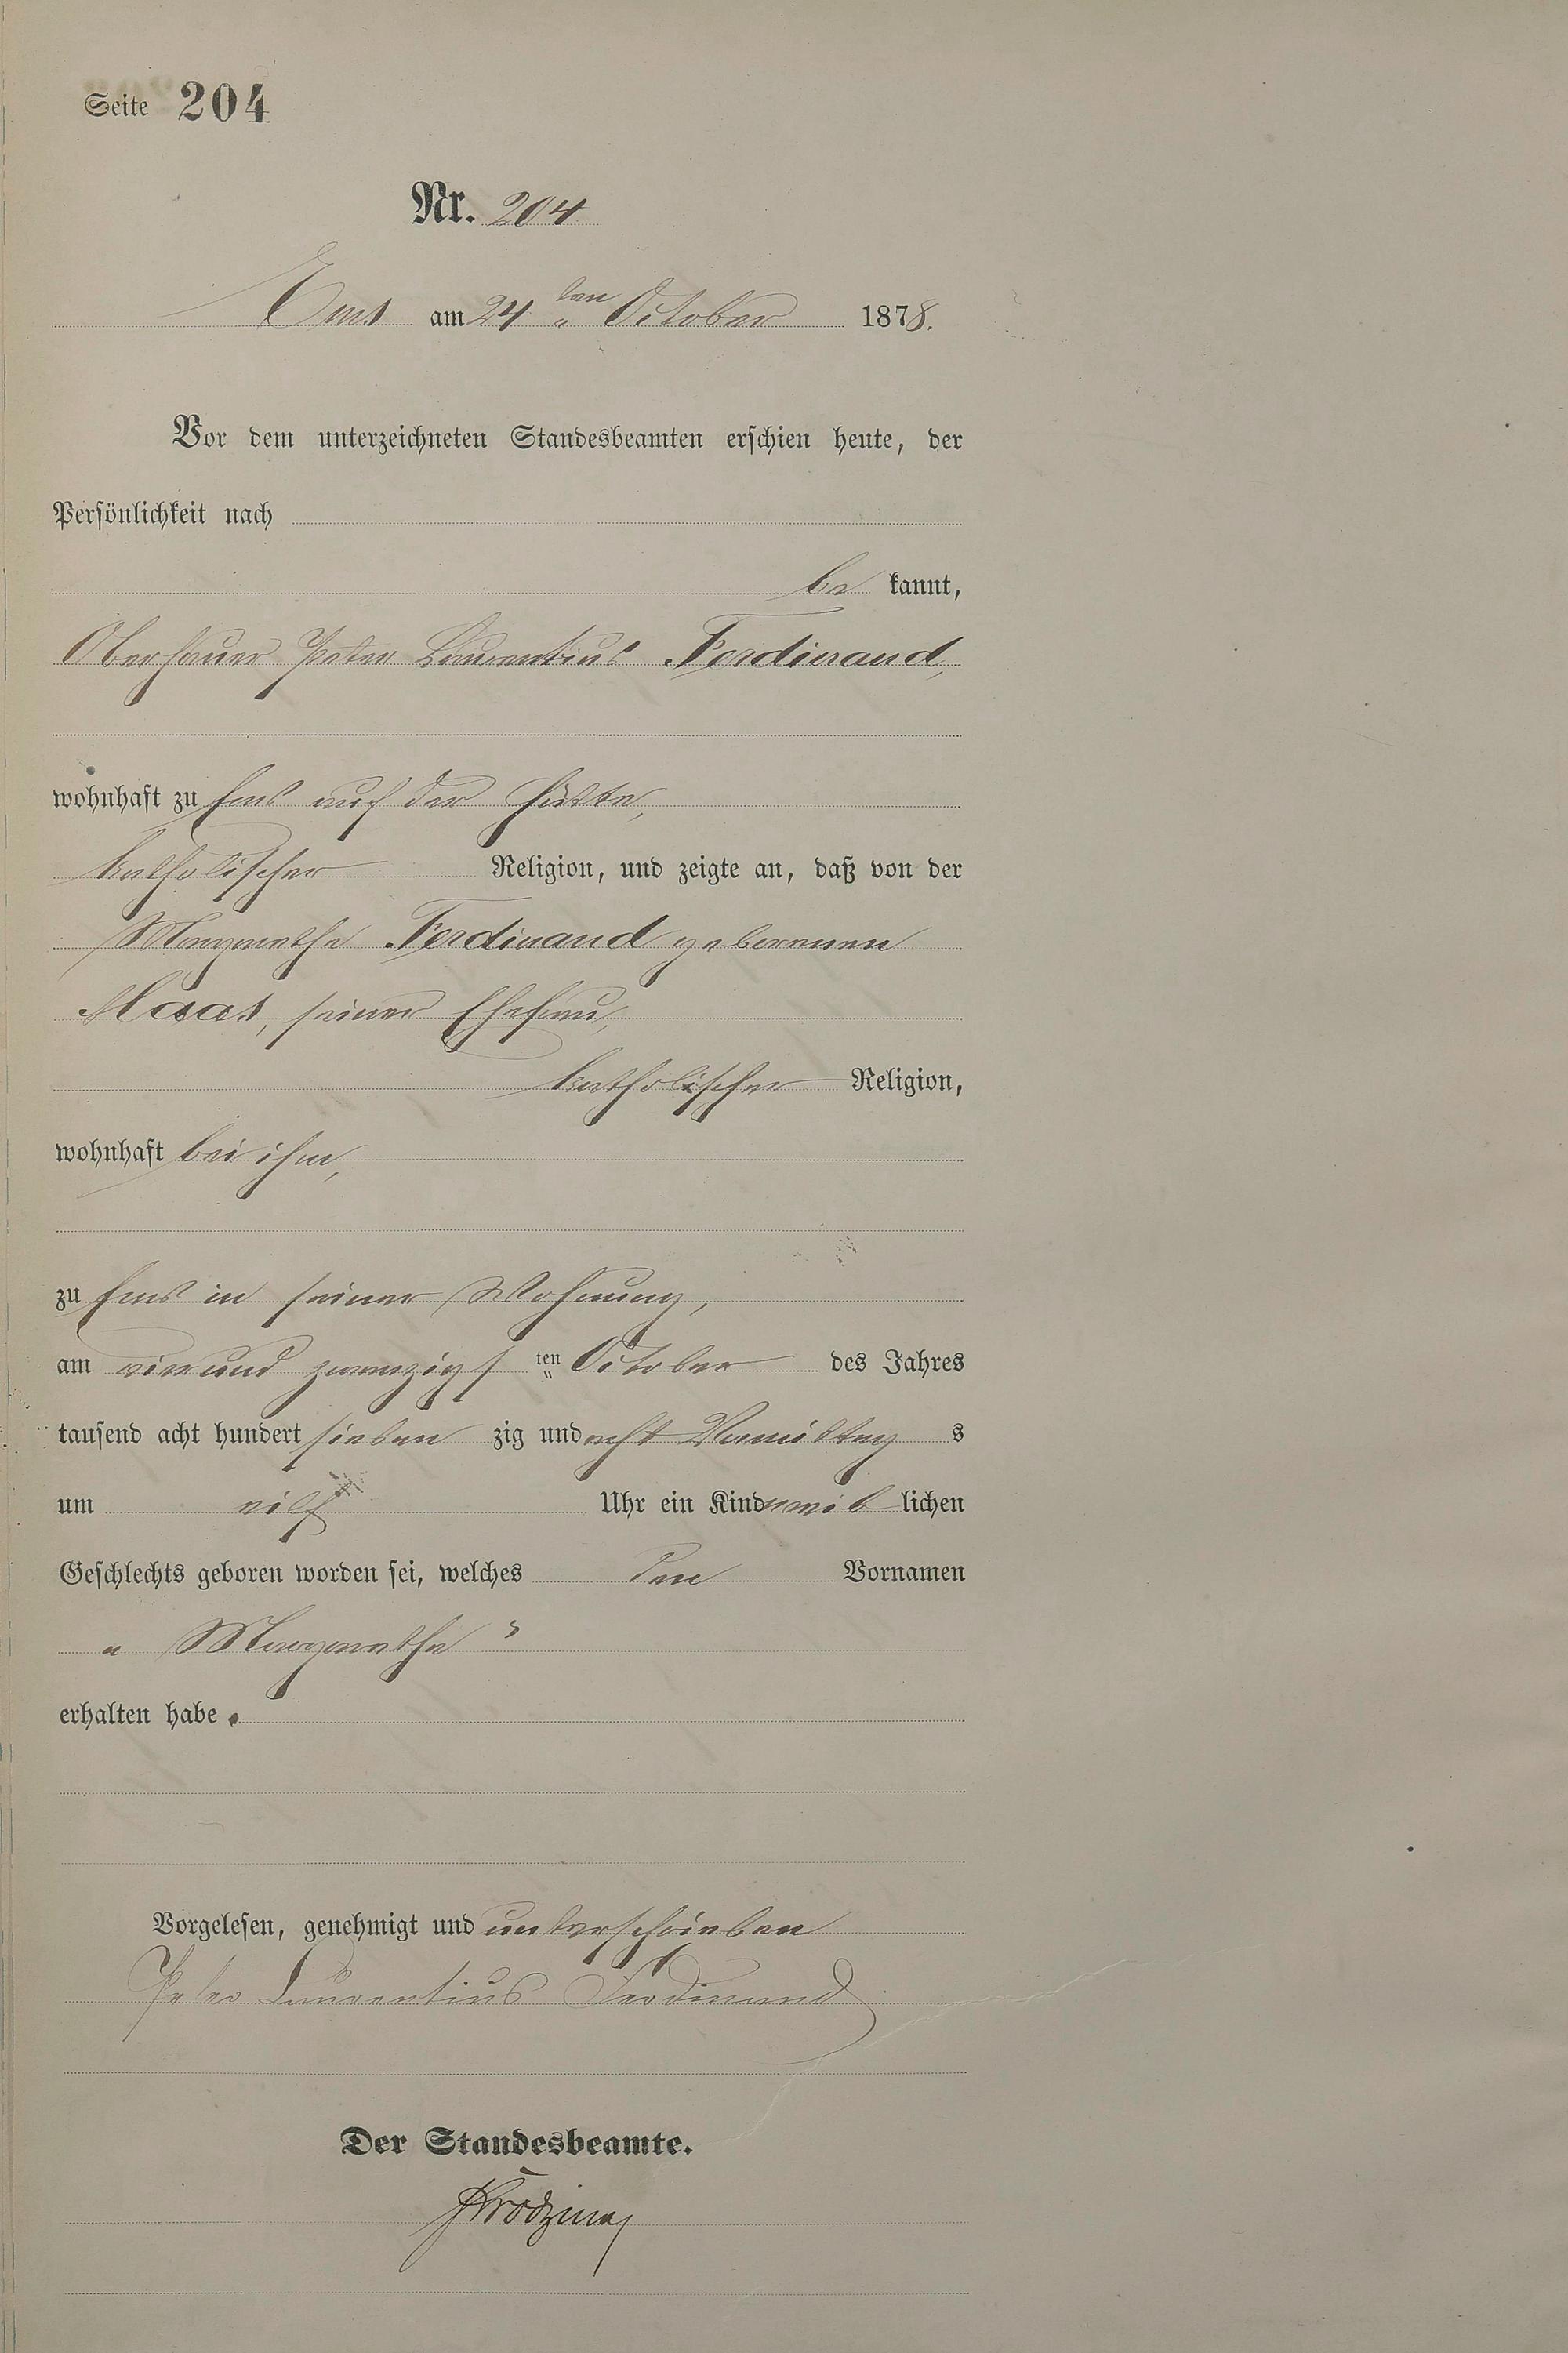 Seite 204
Nr. 204
Ems am 24 ten October 1878.
Vor dem unterzeichneten Standesbeamten erschien heute, der
Persönlichkeit nach
be kannt,
Peter Laurentius Ferdinand,
wohnhaft zu Ems auf der Hütte,
katholischer Religion, und zeigte an, daß von der
Margarethe Ferdinand geborenen
Maas, seiner Ehefrau,
katholischer Religion,
wohnhaft bei ihm,
zu Ems in seiner Wohnung,
am vierundzwanzigs ten October des Jahres
tausend acht hundert sieben zig und acht Vormittag s
um eilf Uhr ein Kind weib lichen
Geschlechts geboren worden sei, welches den Vornamen
„Margarethe"
erhalten habe.
Vorgelesen, genehmigt und unterschrieben
Peter Laurentius Ferdinand
Der Standesbeamte.